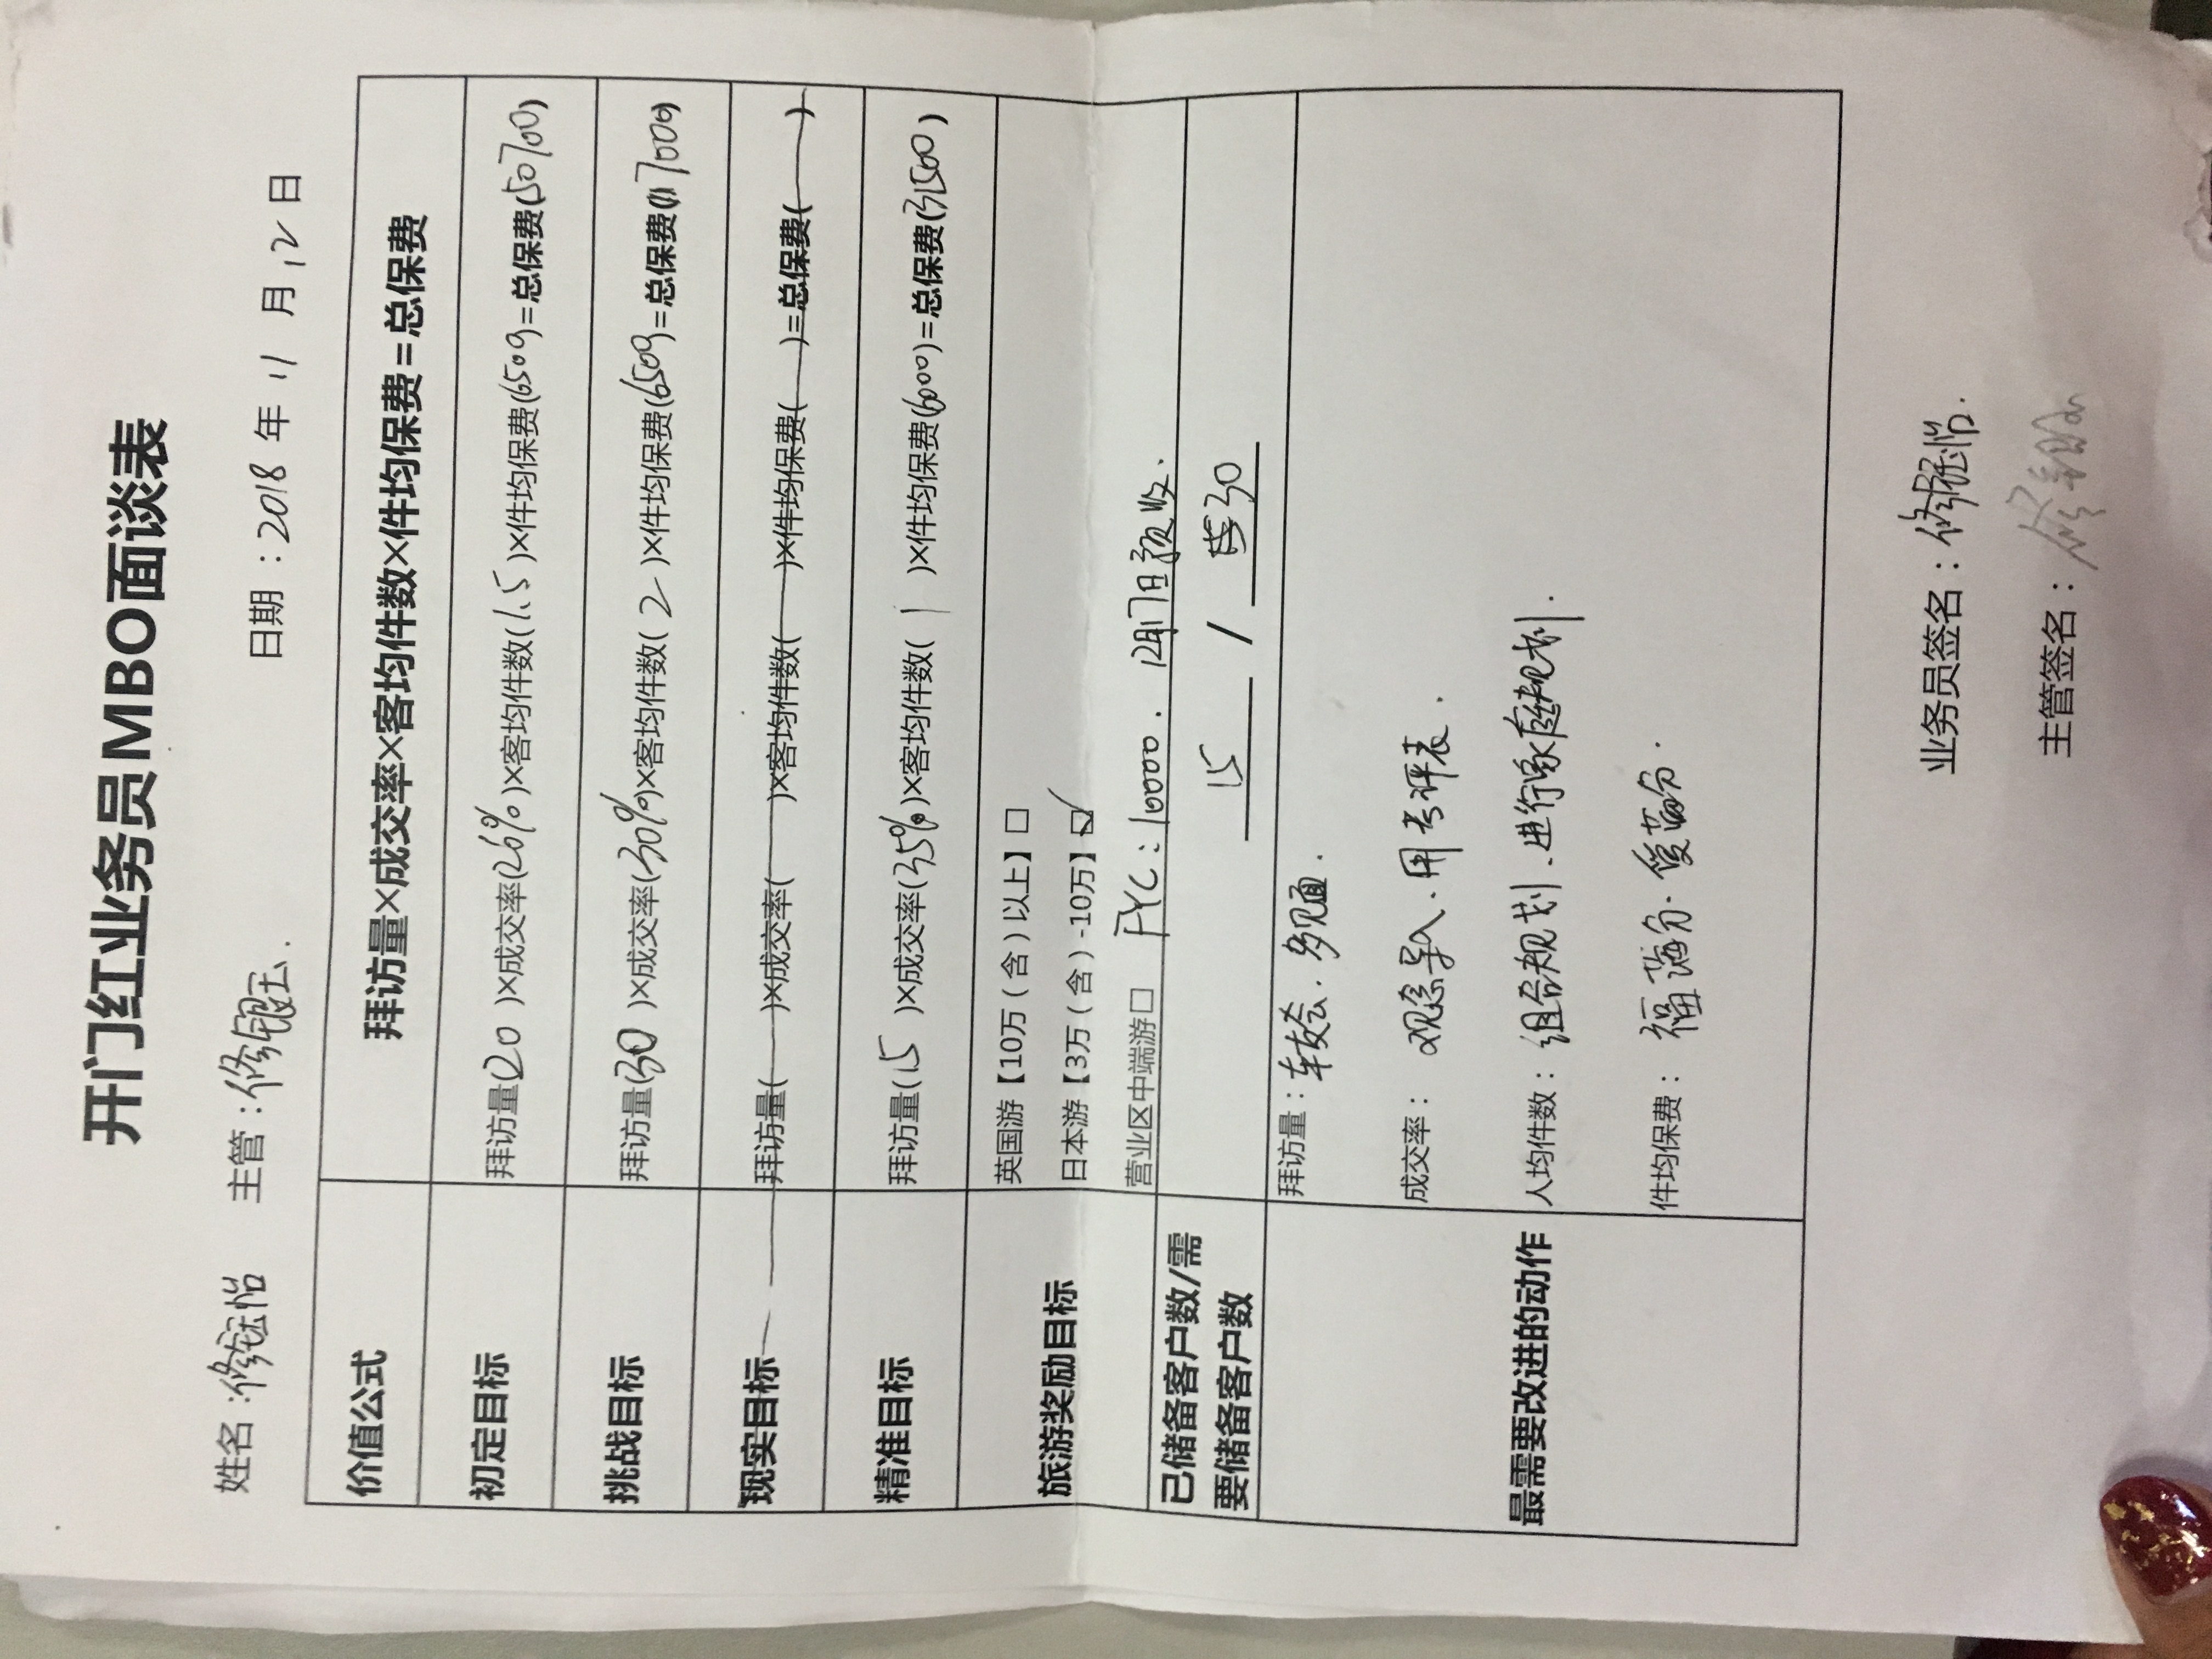 开门红业务员MBO面谈表
姓名:修钰怡 主管:修锟玉. 日期:2018年 11 月 12 日
价值公式 拜访量×成交率×客均件数×件均保费=总保费
初定目标 拜访量(20)×成交率(26%)×客均件数(1.5)×件均保费(6500)=总保费(50700)
挑战目标 拜访量(30)×成交率(30%)×客均件数(2)×件均保费(6500)=总保费(117000)
现实目标 拜访量( )×成交率( )×客均件数( )×件均保费( )=总保费( )
精准目标 拜访量(15)×成交率(35%)×客均件数(1)×件均保费(6000)=总保费(31500)
旅游奖励目标
英国游【10万(含)以上】□
日本游【3万(含)-10万】☑
营业区中端游□ FYC:10000. 12月17日预收.
已储备客户数/需要储备客户数 15 / 30
最需要改进的动作
拜访量: 转介. 多见面.
成交率: 观念导入.用考评表.
人均件数: 组合规划.进行家庭规划.
件均保费: 福满分.
业务员签名:修钰怡.
主管签名: